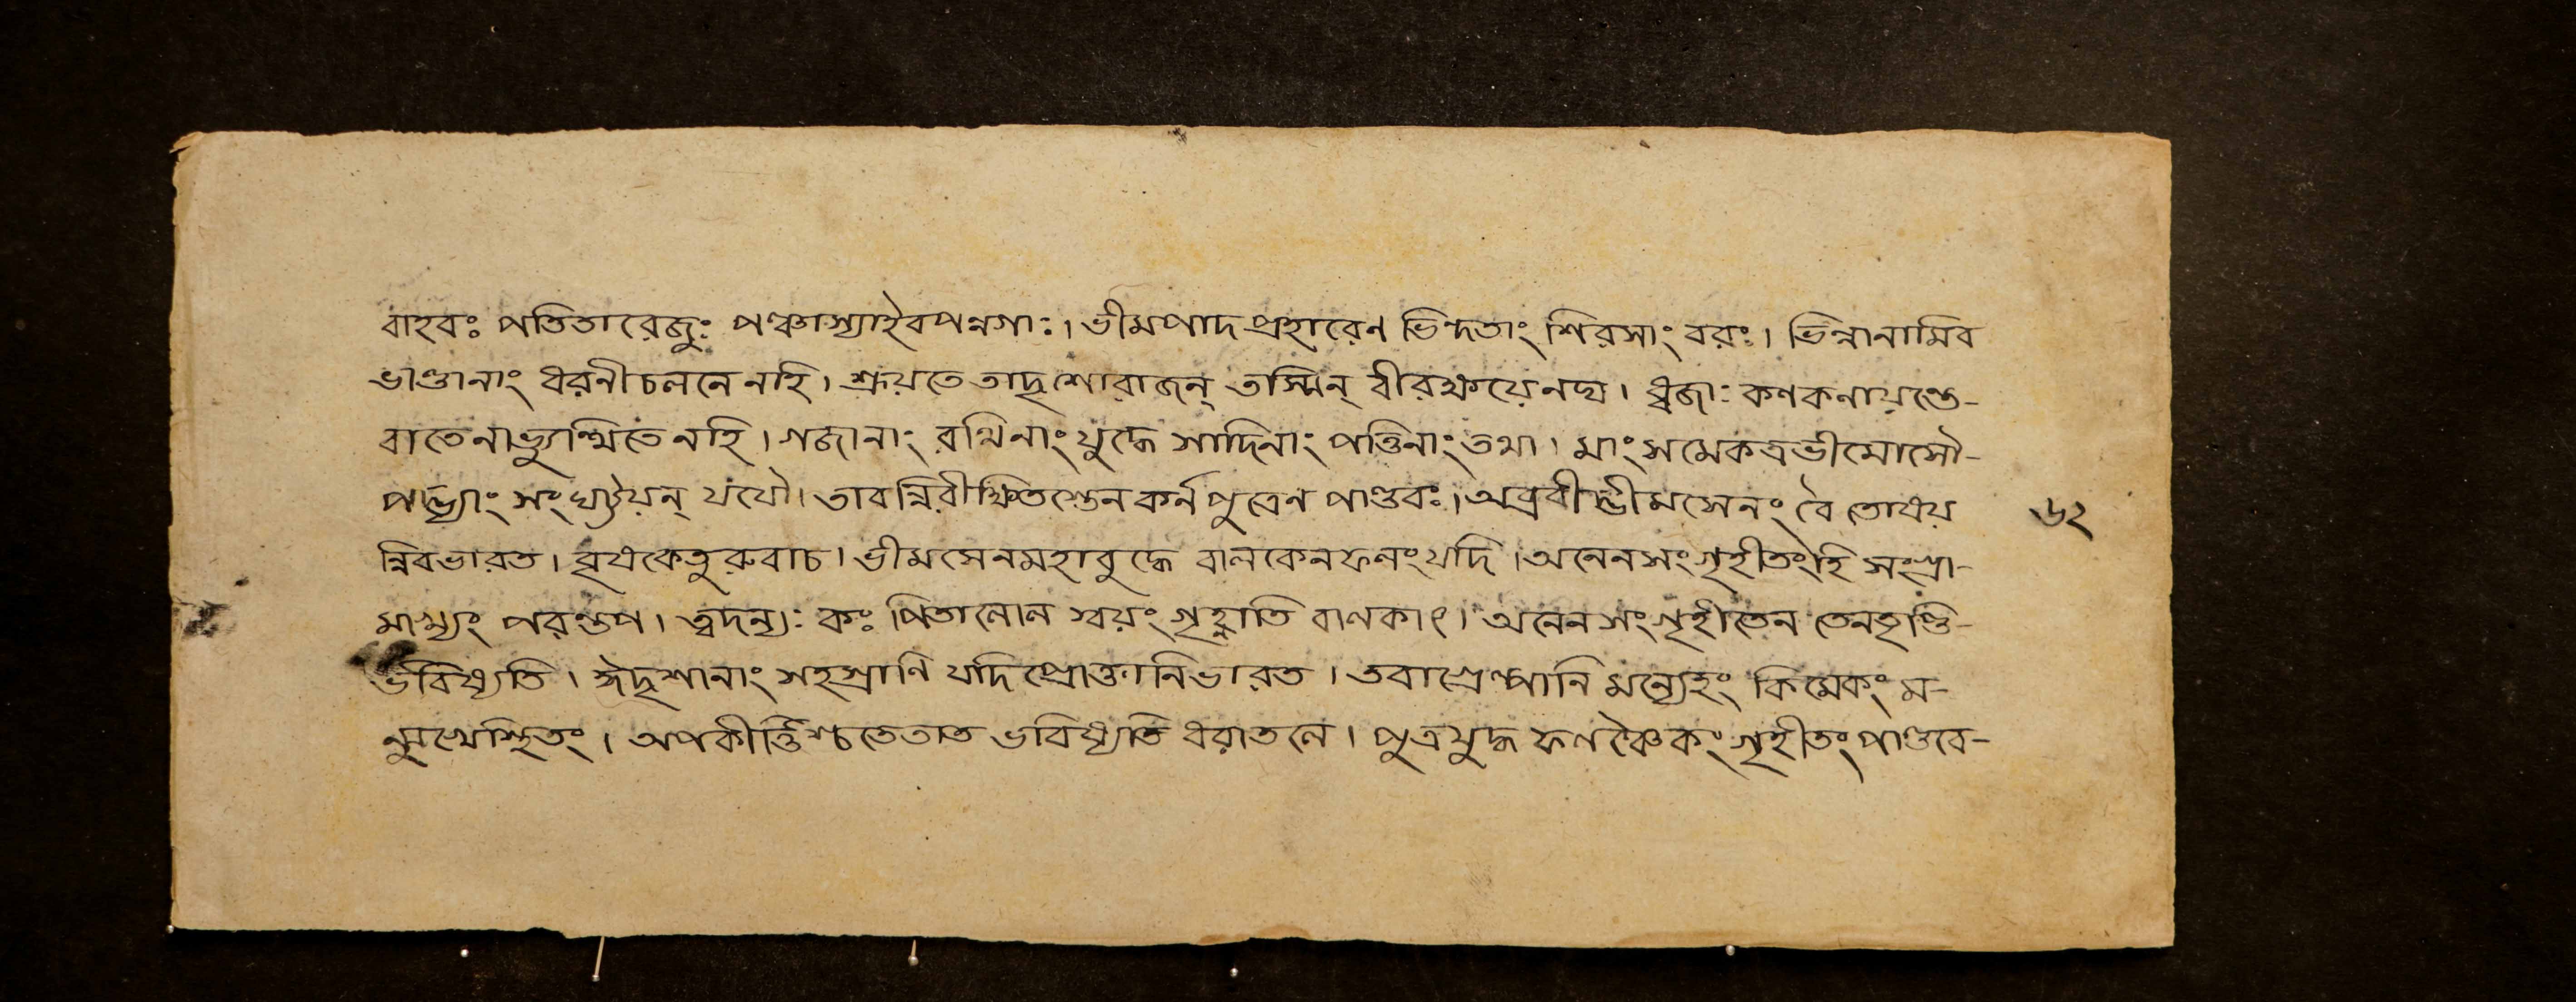 বাহবঃ পতিতারেজুঃ পঞ্চাস্যাইবপন্নগাঃ। ভীমপাদপ্রহারেণ ভিন্দতাং শিরসাং বরঃ। ভিন্নানামিব
ভাণ্ডানাং ধরনীচলনে নহি। শ্রূয়তে তাদৃশোরাজন্ তস্মিন্ বীরক্ষয়েনঘ। ধ্বজাঃ কণকণায়ন্তে-
বাতেনাভ্যুত্থিতে নহি। গজানাং রথিনাং যুদ্ধে সাদিনাং পত্তিনাং তথা। মাংসমেকত্রভীমোসৌ-
পদ্ভ্যাং সংঘট্টয়ন্ যযৌ। তাবন্নিরীক্ষিতস্তেন কর্নপুত্রেন পাণ্ডবঃ। অব্রবীদ্ভীমসেনং বৈ তোষয় ৬২
ন্নিবভারত। বৃষকেতুরুবাচ। ভীমসেনমহাবুদ্ধে বালকেনফলংযদি। অনেনসংগৃহীতংহি সংগ্রা-
মাখ্যং পরন্তপ। ত্বদন্যঃ কঃ পিতানোন স্বয়ং গৃহ্ণাতি বালকাৎ। অনেন সংগৃহীতেন তেনতৃপ্তি-
র্ভবিষ্যতি। ঈদৃশানাং সহস্রাণি যদিপ্রোক্তানিভারত। তবাগ্রেল্পানি মন্যেহং কিমেকং ম-
ন্মুখেস্থিতং। অপকীর্ত্তিশ্চতেতাত ভবিষ্যতি ধরাতলে। পুত্রযুদ্ধ ফলঞ্চৈকং গৃহীতং পাণ্ডবে-